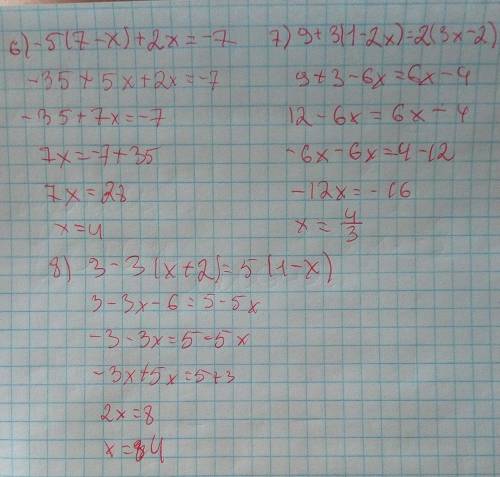 6) -5(7-x)+2x=-7
-35+5x+2x=-7
-35+7x=-7
7x=-7+35
7x=28
x=4
7) 9+3(1-2x)=2(3x-2)
9+3-6x=6x-4
12-6x=6x-4
-6x-6x=4-12
-12x=-16
x=4/3
8) 3-3(x+2)=5(1-x)
3-3x-6=5-5x
-3-3x=5-5x
-3x+5x=5+3
2x=8
x=4